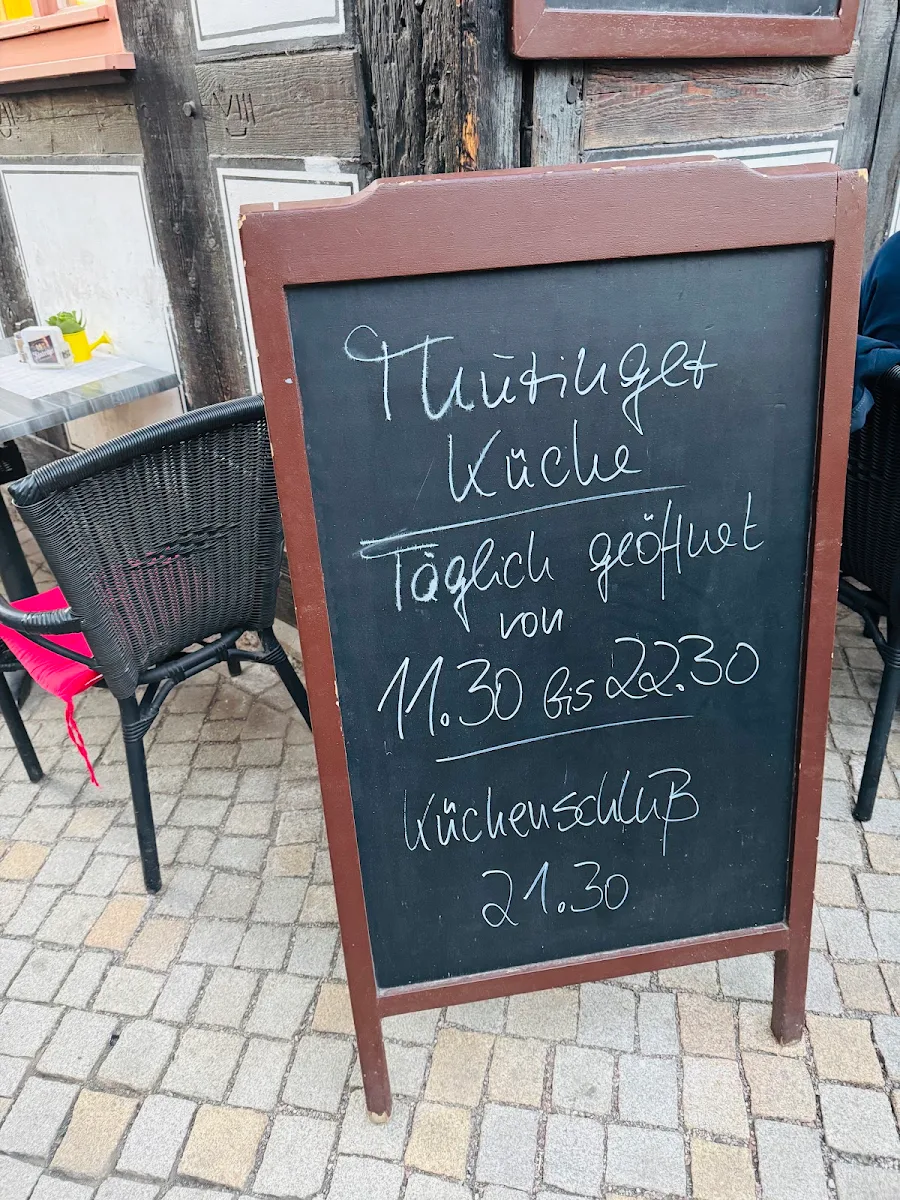 Thüringer
Küche
Täglich geöffnet
von
11.30 bis 22.30
Küchenschluß
21.30
VIII